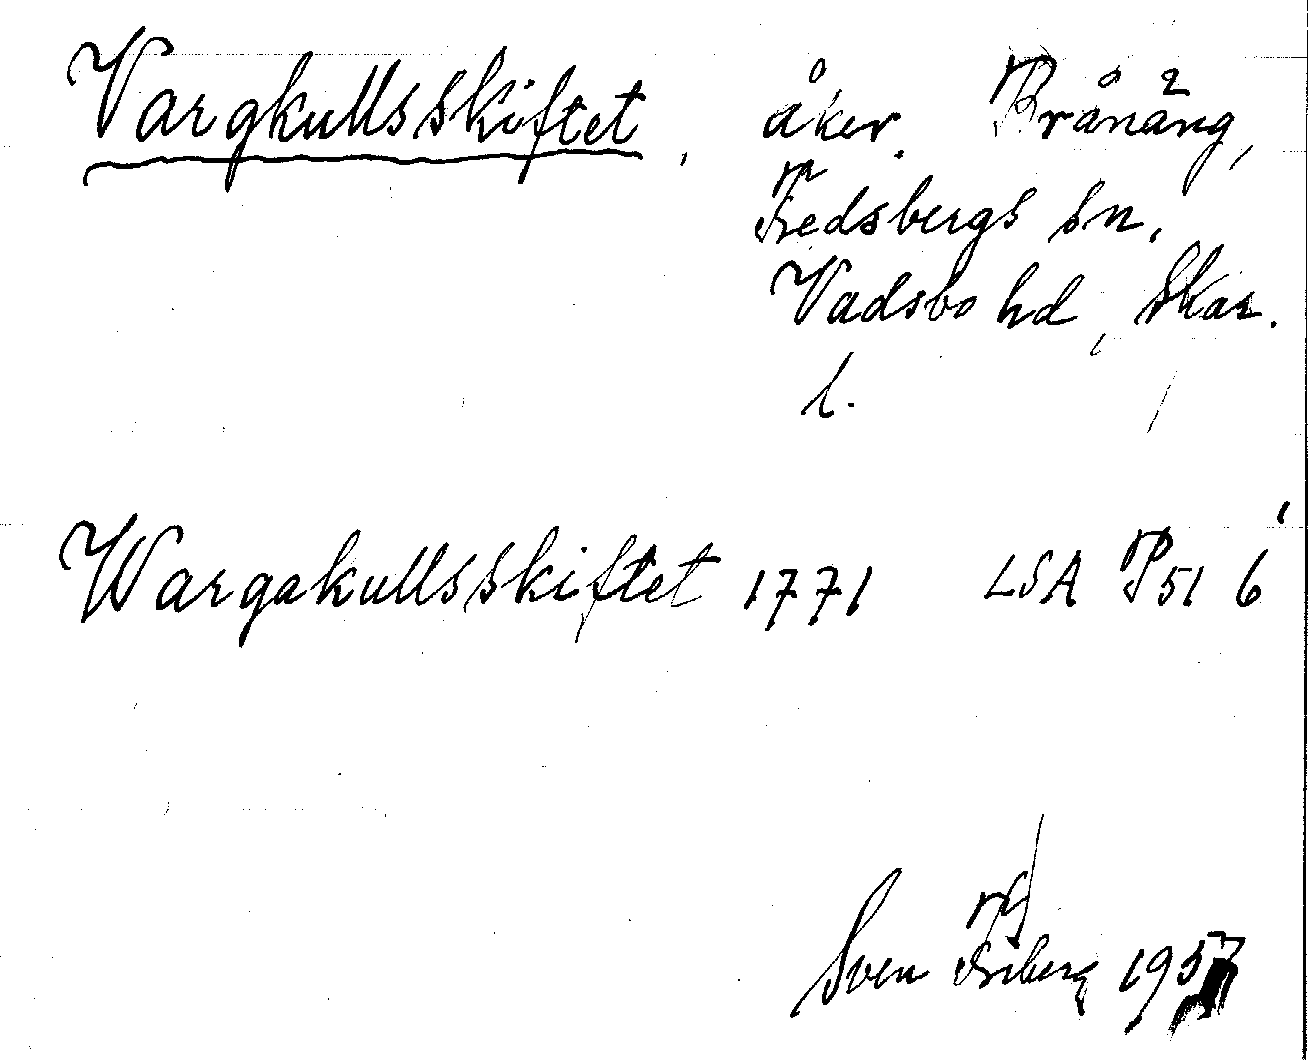 Vargkullsskiftet, åker. Brånäng,
Fredsbergs sn.
Vadsbo hd, Skar.
l.
Wargakullsskiftet 1771 LSA P51 6
Sven Friberg